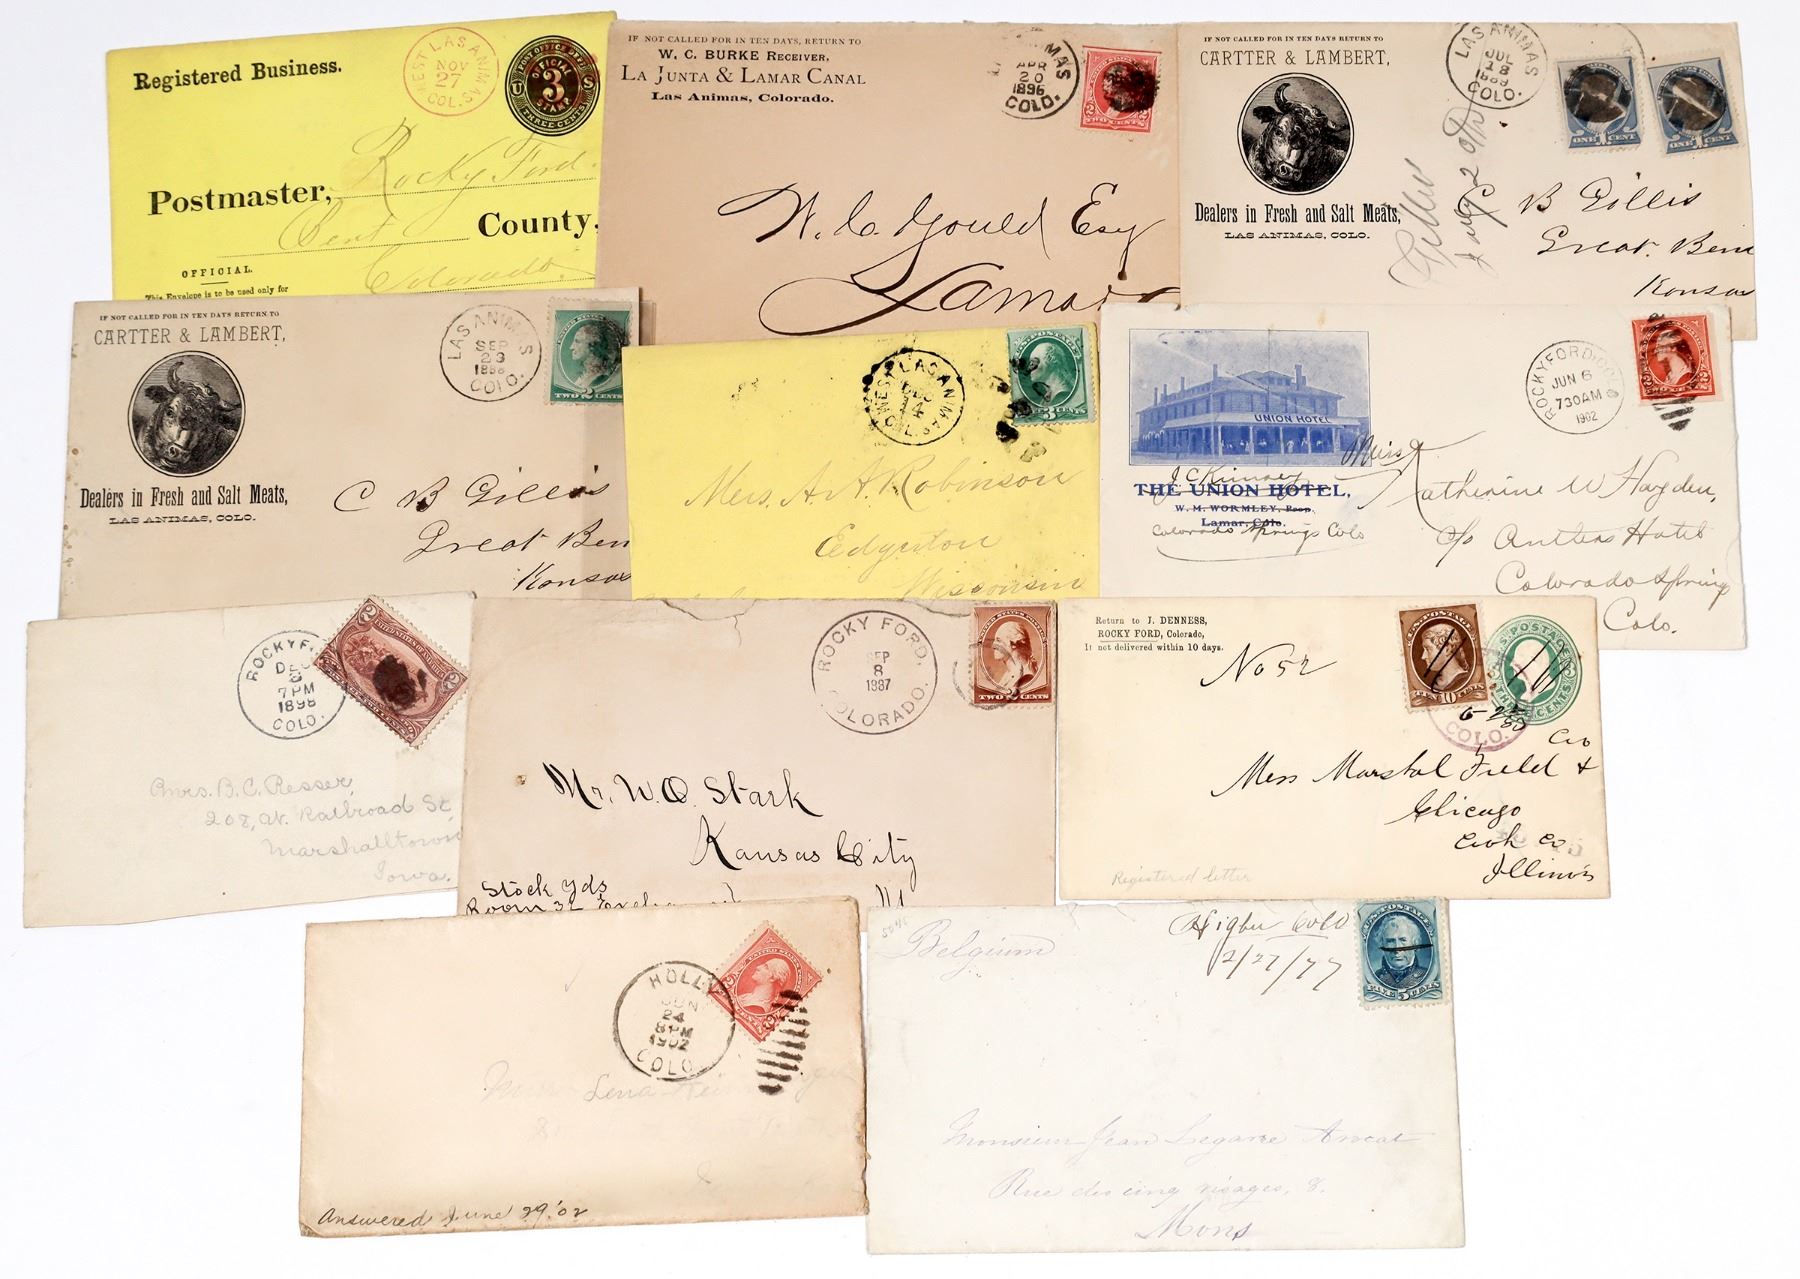 Registered Business.
WEST LAS ANIMAS
NOV
27
COL.
POST OFFICE DEPT.
OFFICIAL
3
STAMP
THREE CENTS
U S
Rocky Ford
Postmaster,
Bent County,
Colorado
OFFICIAL.
This Envelope is to be used only for
IF NOT CALLED FOR IN TEN DAYS, RETURN TO
W. C. BURKE RECEIVER,
LA JUNTA & LAMAR CANAL
Las Animas, Colorado.
MAS
APR
20
1896
COLO.
2 TWO CENTS 2
W. C. Gould Esq
Lamar
IF NOT CALLED FOR IN TEN DAYS RETURN TO
CARTTER & LAMBERT,
Dealers in Fresh and Salt Meats,
LAS ANIMAS, COLO.
LAS ANIMAS
JUL
18
1889
COLO.
ONE 1 CENT
ONE 1 CENT
C B Gillis
Great Ben
Kansas
IF NOT CALLED FOR IN TEN DAYS RETURN TO
CARTTER & LAMBERT,
Dealers in Fresh and Salt Meats,
LAS ANIMAS, COLO.
LAS ANIMAS
SEP
23
1888
COLO.
TWO 2 CENTS
C B Gillis
Great Ben
Kansas
WEST LAS ANIMAS
COL.
U.S. POSTAGE
3 CENTS
Mrs. A. A. Robinson
Edgerton
Wisconsin
UNION HOTEL
J C Kinney
THE UNION HOTEL,
W. M. WORMLEY, PROP.
Lamar, Colo.
Colorado Springs Colo
ROCKYFORD COLO
JUN 6
730AM
1902
Miss
Katherine W Hayden,
c/o Antlers Hotel
Colorado Spring
Colo.
ROCKYF
DEC
8
7PM
1898
COLO.
2 UNITED STATES OF AMERICA 2
Mrs. B. C. Resser,
208, W. Railroad St,
Marshalltown
Iowa.
ROCKY FORD,
SEP
8
1887
COLORADO.
TWO 2 CENTS
Mr. W. O. Stark
Kansas City
Stock Yds
Room 32
Return to J. DENNESS,
ROCKY FORD, Colorado,
If not delivered within 10 days.
No 52
U.S. POSTAGE
10 CENTS
COLO.
Mess Marshal Field &
Co
Chicago
Cook Co
Illinois
Registered letter
HOLLY
JUN
24
8PM
1902
COLO.
Lena
Answered June 29.'02
5045
Belgium
Higbee Colo
2/27/77
U.S. POSTAGE
FIVE 5 CENTS
Monsieur Jean Legarie Avocat
Rue des cinq visages, 8.
Mons